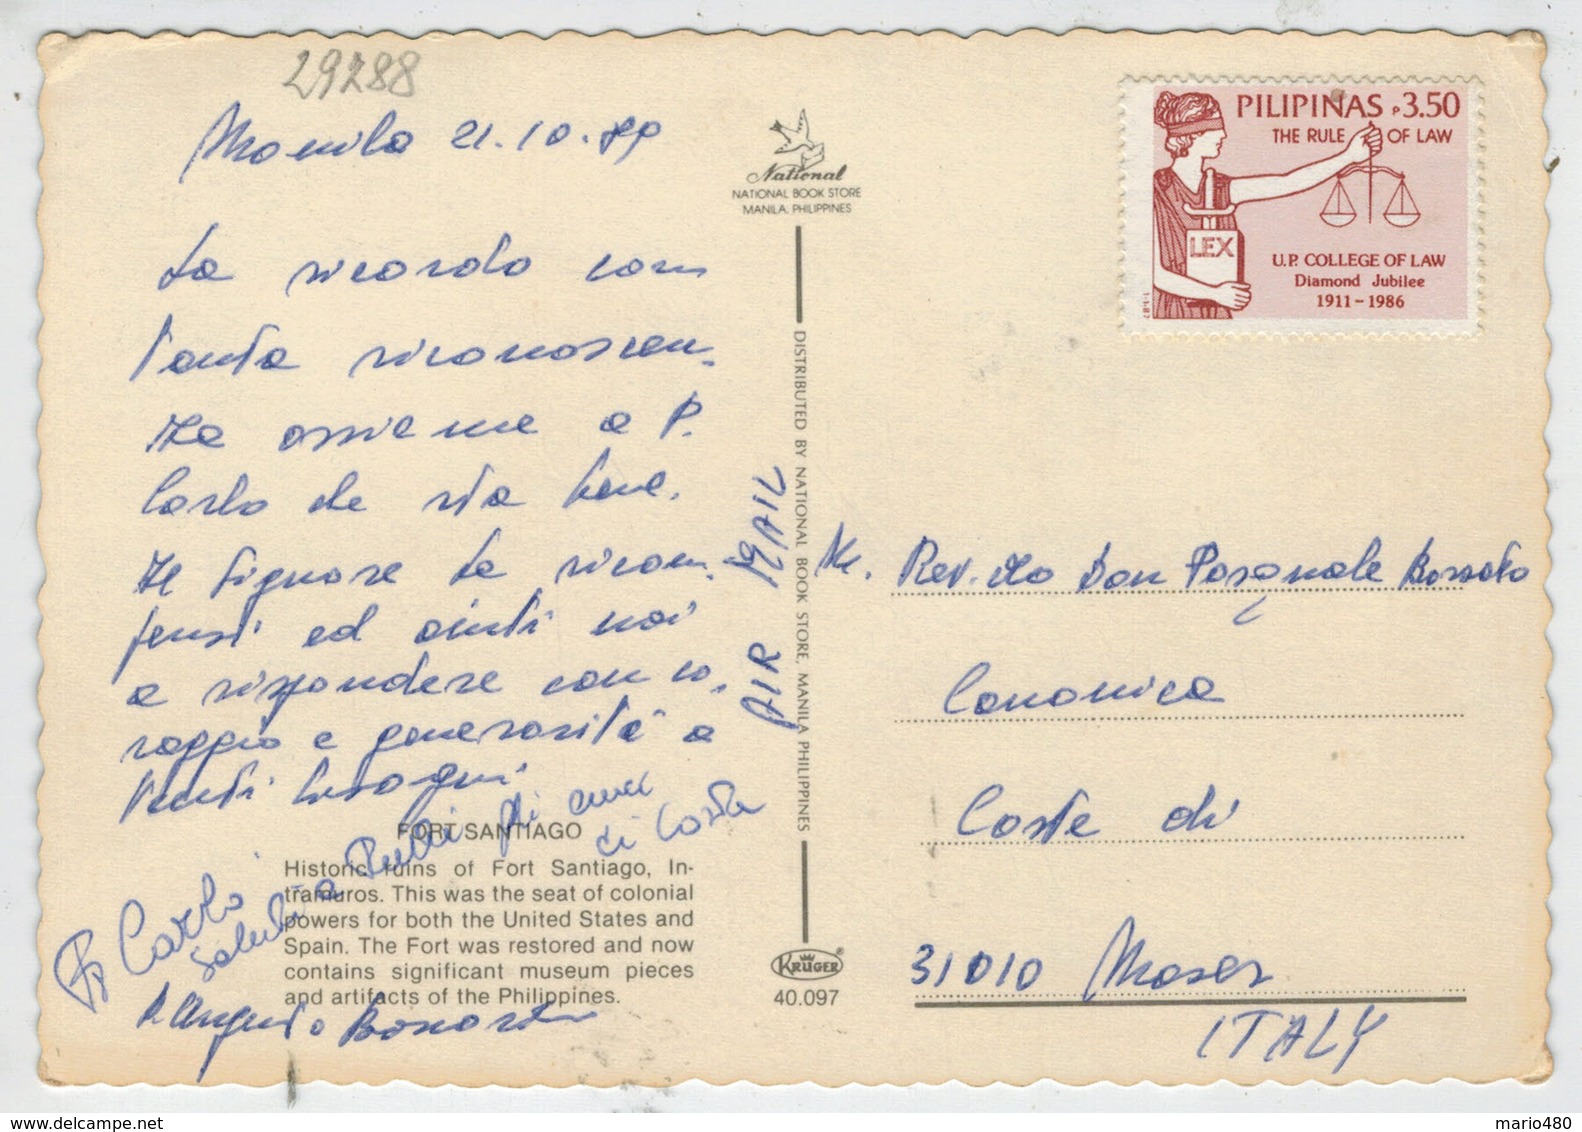 29288
Manila 21.10.89
La ricordo con
tanta riconoscen-
za assieme a P.
Carlo che sta bene.
Il Signore La ricom-
pensi ed aiuti noi
a rispondere con co-
raggio e generosità a
tanti bisogni
P. Carlo
saluti a tutti gli amici
di Coste
P. Angelo
FORT SANTIAGO
Historic ruins of Fort Santiago, In-
tramuros. This was the seat of colonial
powers for both the United States and
Spain. The Fort was restored and now
contains significant museum pieces
and artifacts of the Philippines.
National
NATIONAL BOOK STORE
MANILA, PHILIPPINES
DISTRIBUTED BY NATIONAL BOOK STORE, MANILA PHILIPPINES
AIR MAIL
KRÜGER®
40.097
PILIPINAS P3.50
THE RULE OF LAW
LEX
U.P. COLLEGE OF LAW
Diamond Jubilee
1911-1986
1-1-87
M. Rev.do Don Pasquale
Canonica
Coste di
31010 Maser
ITALY
mario480